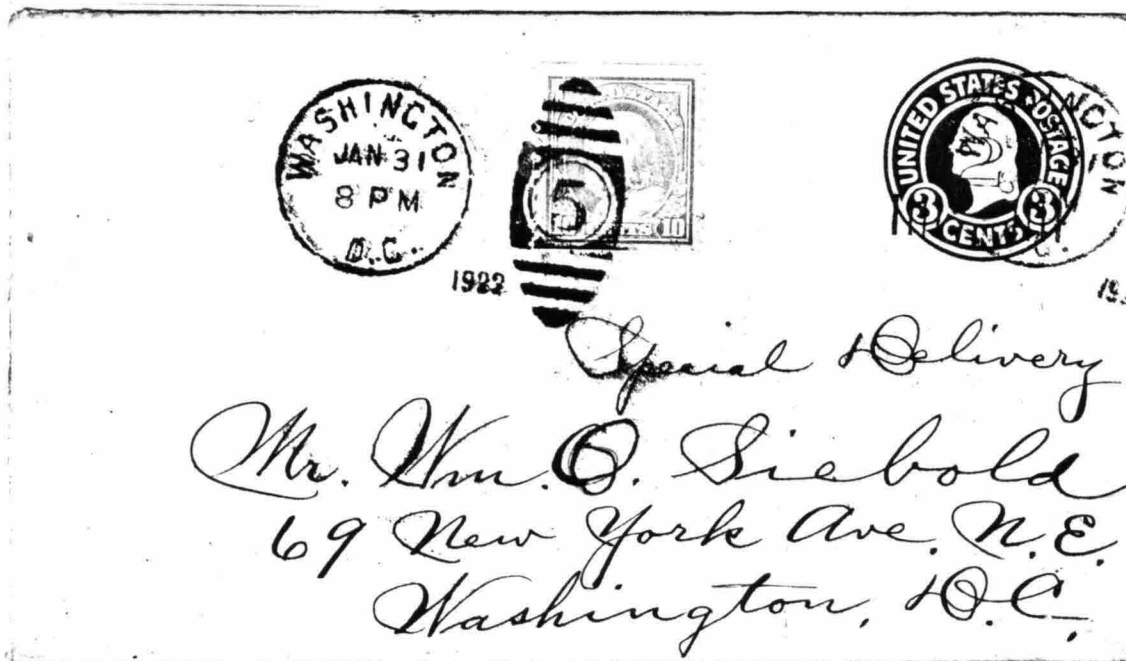 WASHINGTON
JAN 31
8 PM
D.C.
1922
5
10
UNITED STATES POSTAGE
3 CENTS 3
Special Delivery
Mr. Wm. O. Siebold
69 New York Ave. N.E.
Washington, D.C.